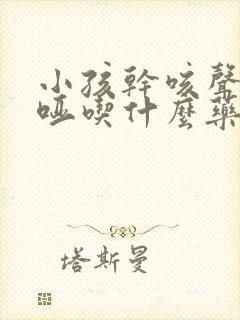 小孩幹咳聲
啞喫什麼藥
塔斯曼